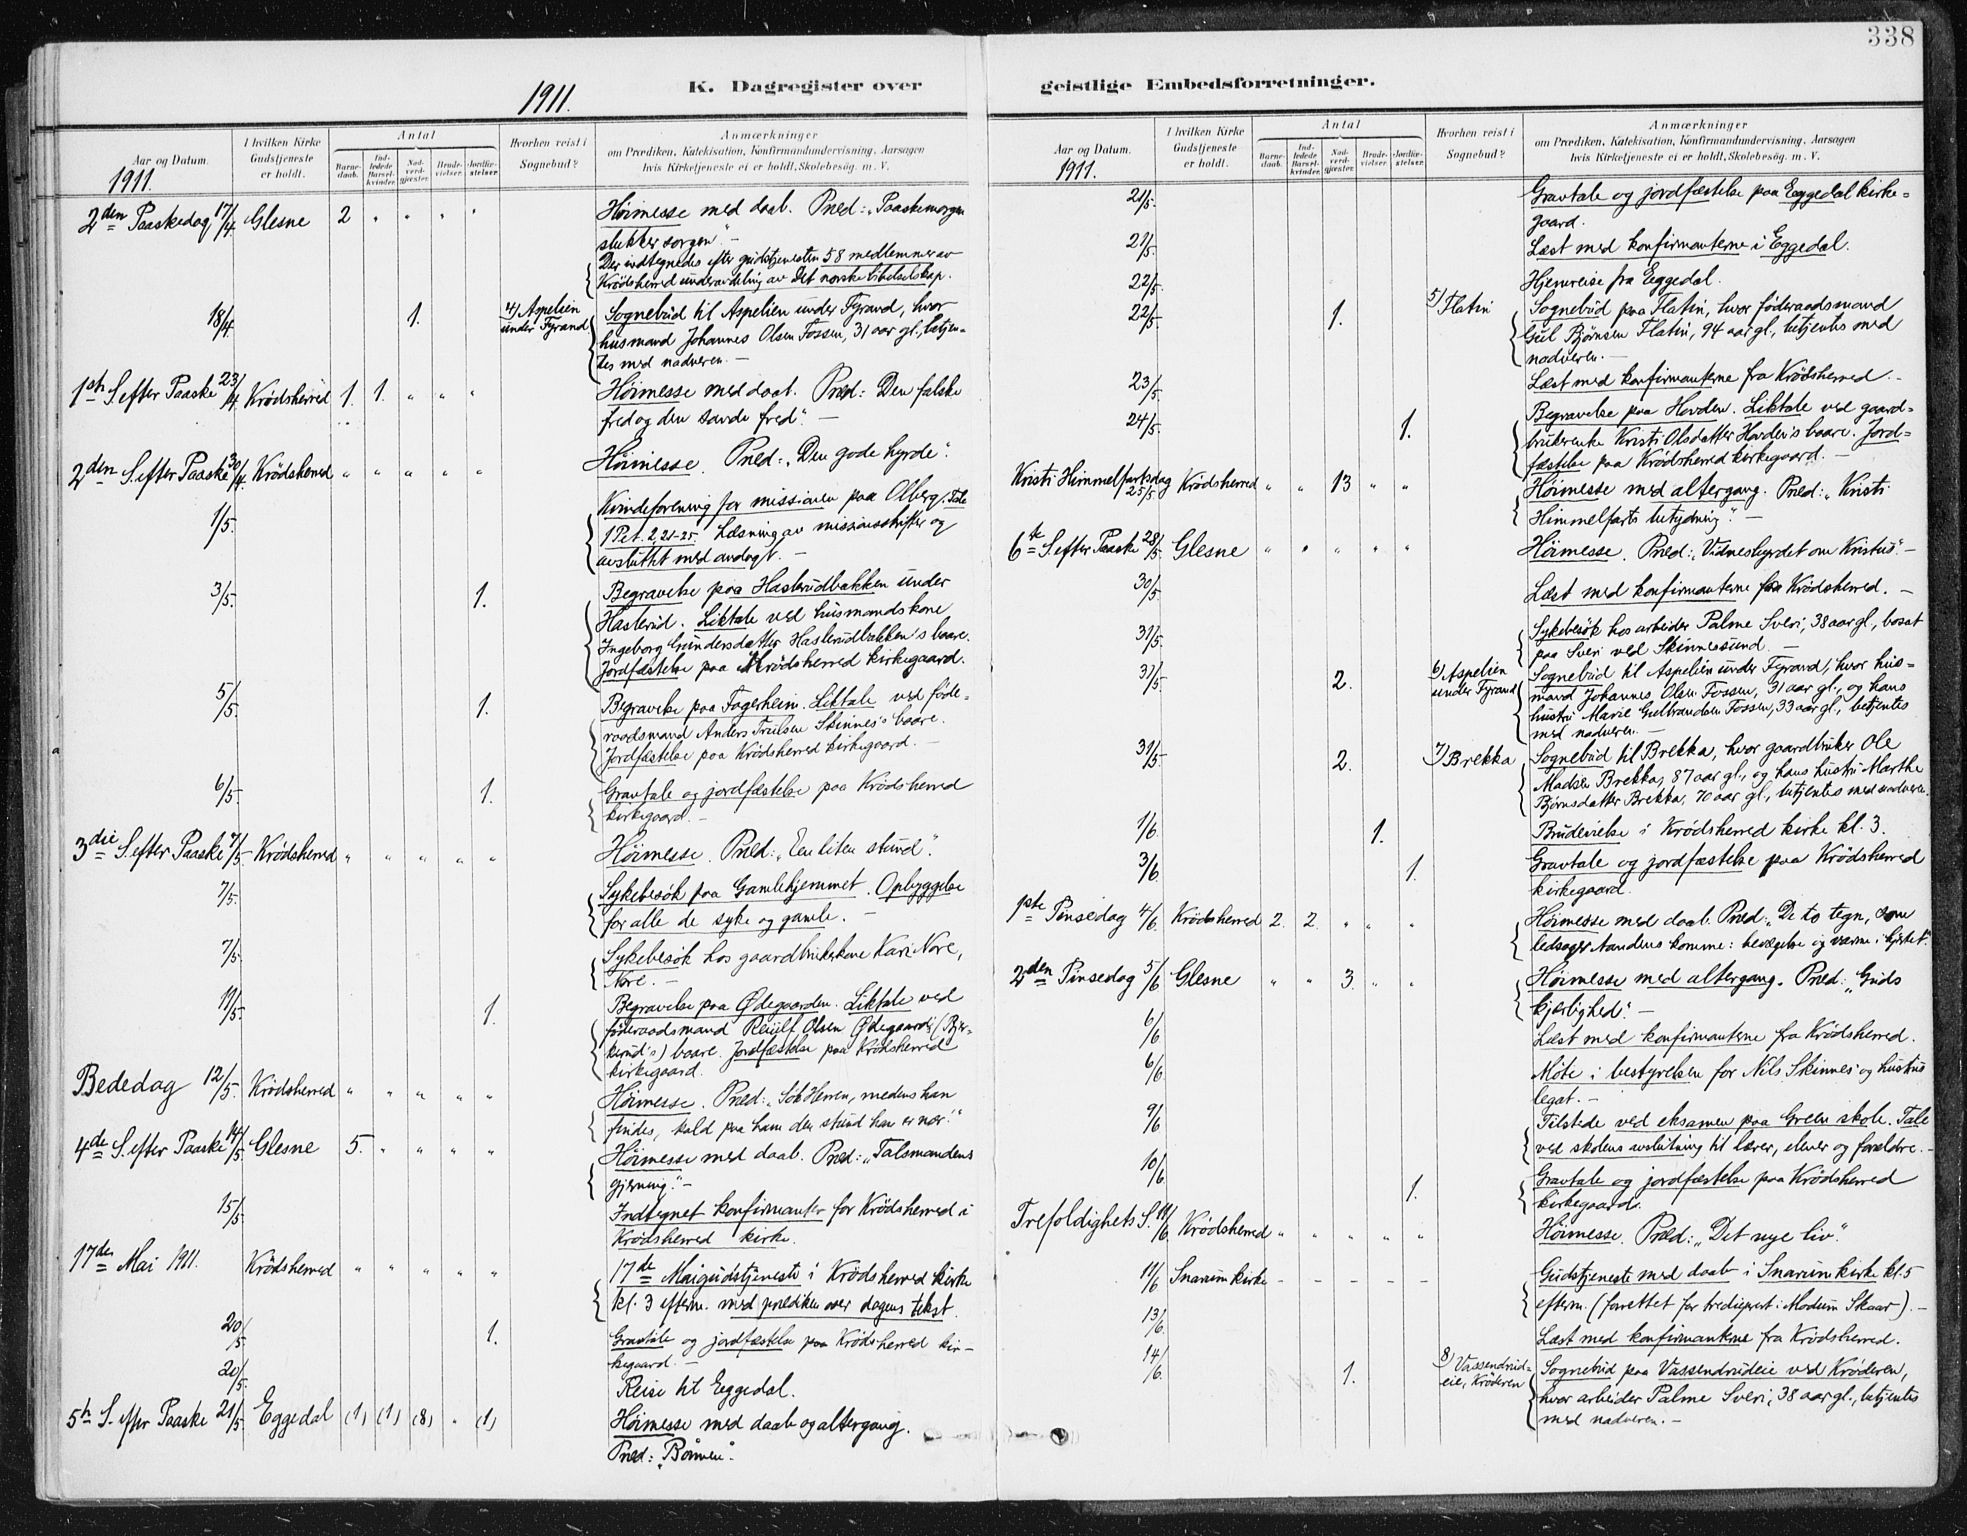 338
K. Dagregister over
geistlige Embedsforretninger.
1911.
Aar og Datum.
1911.
I hvilken Kirke
Gudstjeneste
er holdt.
Antal
Barne-
daab.
Ind-
ledede
Barsel-
kvinder.
Nad-
verd-
gjæster.
Brude-
vielser.
Jordfæ-
stelser.
Hvorhen reist i
Sognebud?
Anmærkninger
om Prædiken, Katekisation, Konfirmandundervisning, Aarsagen
hvis Kirketjeneste ei er holdt, Skolebesøg. m. V.
2den Paaskedag 17/4. Glesne 2 " " " " Høimesse med daab. Præd: „Paaskemorgen
slukker sorgen". –
Der indtegnedes efter gudstjenesten 58 medlemmer av
Krødsherred underavdeling av Det norske bibelselskap.
18/4. 1. 4) Aspelien Sognebud til Aspelien under Fyrand, hvor
under Fyrand. husmand Johannes Olsen Fossen, 31 aar gl., betjen-
tes med nadveren. –
1ste S. efter Paaske 23/4. Krødsherred 1. 1. " " " Høimesse med daab. Præd: Den falske
fred og den sande fred". –
2den S. efter Paaske 30/4. Krødsherred " " " " " Høimesse. Præd: „Den gode hyrde".
1/5. Kvindeforening for missionen paa Olberg. Tale
1 Pet. 2,21-25. Læsning av missionsskrifter og
avsluttet med andagt. –
3/5. 1. Begravelse paa Haslerudbakken under
Haslerud. Liktale ved husmandskone
Ingeborg Gundersdatter Haslerudbakken's baare.
Jordfæstelse paa Krødsherred kirkegaard.
5/5. 1. Begravelse paa Fagerheim. Liktale ved føde-
raadsmand Anders Truls­en Skinnes's baare.
Jordfæstelse paa Krødsherred kirkegaard. –
6/5. 1. Gravtale og jordfæstelse paa Krødsherred
kirkegaard. –
3die S. efter Paaske 7/5. Krødsherred " " " " " Høimesse. Præd: „En liten stund".
7/5. Sykebesøk paa Gamlehjemmet. Opbyggelse
for alle de syke og gamle. –
7/5. Sykebesøk hos gaardbrukerkone Kari Nore,
Nore. –
11/5. 1. Begravelse paa Ødegaarden. Liktale ved
føderaadsmand Olsen Ødegaards (Bjer-
kerud's) baare. Jordfæstelse paa Krødsherred
kirkegaard.
Bededag 12/5. Krødsherred " " " " " Høimesse. Præd: „Søk Herren, medens han
findes, kald paa ham den stund han er nær".
4de S. efter Paaske 14/5. Glesne 5. " " " " Høimesse med daab. Præd: „Talsmandens
gjerning". –
15/5. Indtegnet konfirmanter for Krødsherred i
Krødsherred kirke.
17de Mai 1911. Krødsherred " " " " " 17de Maigudstjeneste i Krødsherred kirke
kl. 3 efterm. med prædiken over dagens tekst.
20/5. 1. Gravtale og jordfæstelse paa Krødsherred kir-
kegaard. –
20/5. Reise til Eggedal.
5te S. efter Paaske 21/5. Eggedal (1) (1) (8) " (1) Høimesse med daab og altergang.
Præd: „Bønnen".
Aar og Datum.
1911.
I hvilken Kirke
Gudstjeneste
er holdt.
Antal
Barne-
daab.
Ind-
ledede
Barsel-
kvinder.
Nad-
verd-
gjæster.
Brude-
vielser.
Jordfæ-
stelser.
Hvorhen reist i
Sognebud?
Anmærkninger
om Prædiken, Katekisation, Konfirmandundervisning, Aarsagen
hvis Kirketjeneste ei er holdt, Skolebesøg. m. V.
21/5. Gravtale og jordfæstelse paa Eggedal kirke-
gaard.
21/5. Læst med konfirmanterne i Eggedal.
22/5. Hjemreise fra Eggedal.
22/5. 1. 5) Flatin Sognebud paa Flatin, hvor føderaadsmand
Gul Bjørnsen Flatin, 94 aar gl., betjentes med
nadveren. –
23/5. Læst med konfirmanterne fra Krødsherred. –
24/5. 1. Begravelse paa Hovden. Liktale ved gaard-
brukerenke Kristi Olsdatter Hovden's baare. Jord-
fæstelse paa Krødsherred kirkegaard. –
Kristi Himmelfartsdag
25/5 Krødsherred " " 13 " " Høimesse med altergang. Præd: „Kristi
Himmelfarts betydning". –
6te S. efter Paaske 28/5. Glesne " " " " " Høimesse. Præd: „Vidnesbyrdet om Kristus". –
30/5. Læst med konfirmanterne fra Krødsherred. –
31/5. Sykebesøk hos arbeider Palme Sveri, 38 aar gl., bosat
paa Sveri ved Skinnessund. –
31/5. 2. 6) Aspelien Sognebud til Aspelien under Fyrand, hvor hus-
under Fyrand mand Johannes Olsen Fossen, 31 aar gl., og hans
hustru Marie Gulbrandsen Fossen, 33 aar gl., betjentes
med nadveren. –
31/5. 2. 7) Brekka Sognebud til Brekka, hvor gaardbruker Ole
Madsen Brekka, 87 aar gl., og hans hustru Marthe
Bjørnsdatter Brekka, 70 aar gl., betjentes med nadveren.
1/6. 1. Brudevielse i Krødsherred kirke kl. 3.
3/6. 1. Gravtale og jordfæstelse paa Krødsherred
kirkegaard.
1ste Pinsedag 4/6. Krødsherred 2. 2. " " " Høimesse med daab. Præd: „De to tegn, som
ledsager Aandens komme: bevægelse og varme i hjertet".
2den Pinsedag 5/6 Glesne " " 3. " " Høimesse med altergang. Præd: „Guds
kjærlighed". –
6/6 Læst med konfirmanterne fra Krødsherred.
6/6. Møte i bestyrelsen for Nils Skinnes' og hustrus
legat. –
9/6 Tilstede ved eksamen paa Green skole. Tale
ved skolens avslutning til lærer, elever og forældre. –
10/6. 1. Gravtale og jordfæstelse paa Krødsherred
kirkegaard.
Trefoldighets S. 11/6. Krødsherred " " " " " Høimesse. Præd: „Det nye liv".
11/6 Snarum kirke – – – – – Gudstjeneste med daab i Snarum kirke kl. 5
efterm. (forrettet for tredieprest i Modum Skaar). –
13/6. Læst med konfirmanterne fra Krødsherred.
14/6. 1. 8) Vassendrud- Sognebud paa Vassendrudeie ved Krøderen,
eie, Krøderen hvor arbeider Palme Sveri, 38 aar gl., betjentes
med nadveren. –